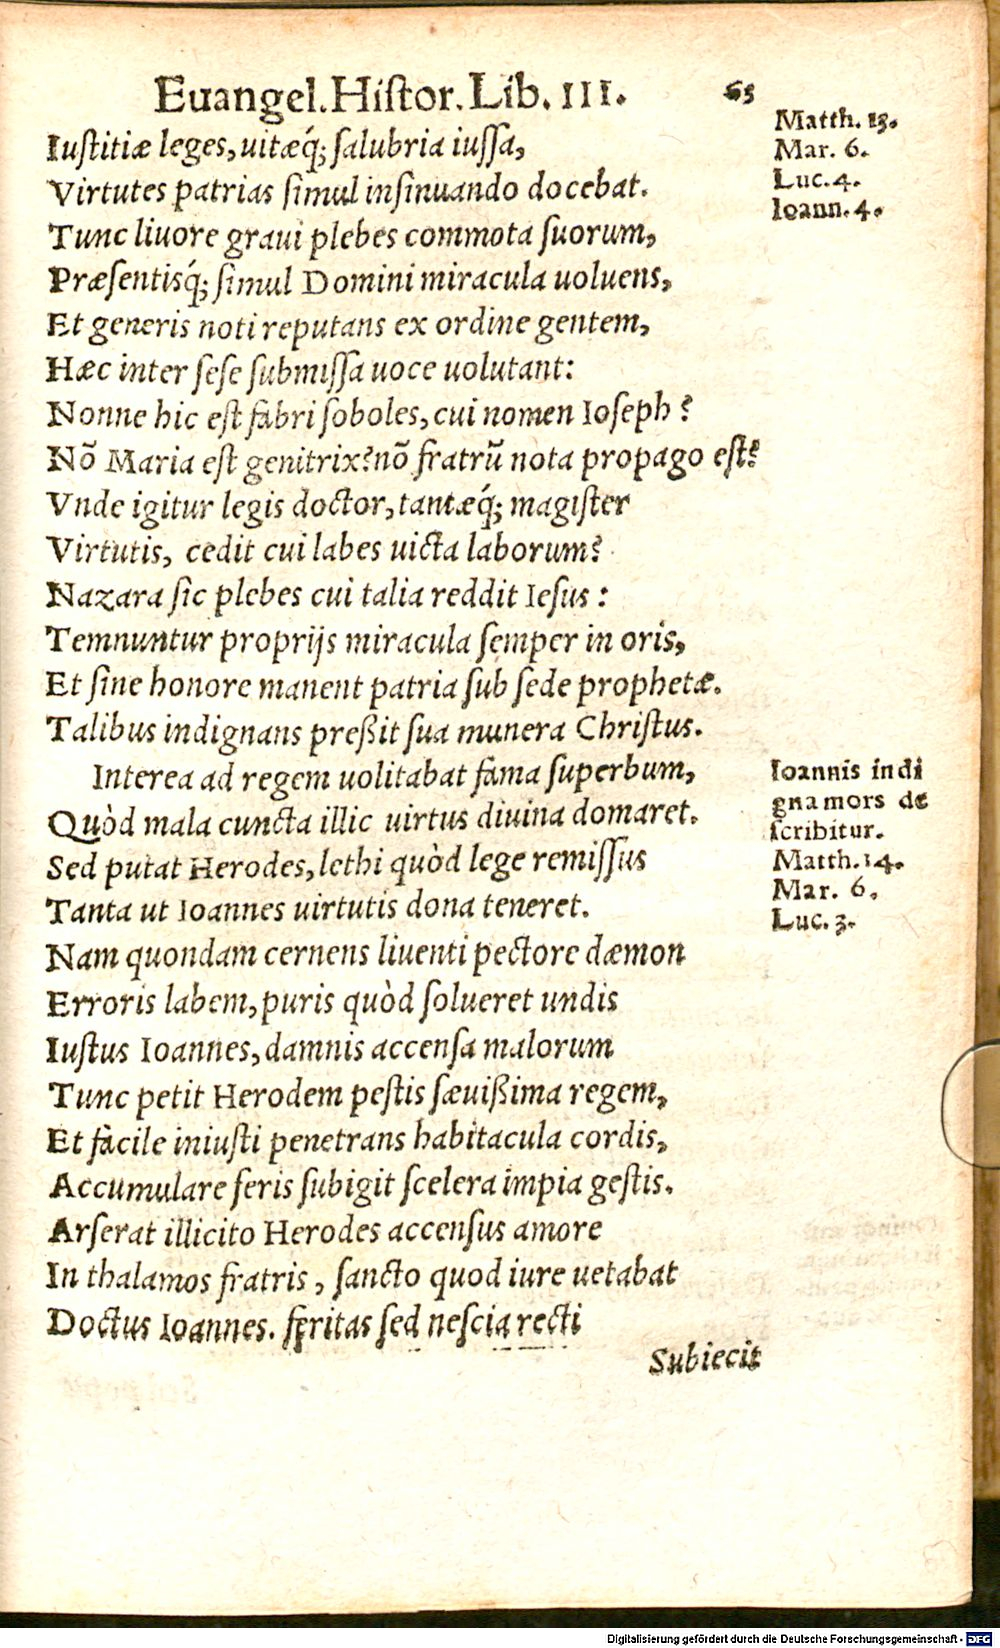 Euangel. Histor. Lib. III. 65
Matth. 13.
Mar. 6.
Luc. 4.
Ioann. 4.
Iustitiæ leges, uitæq́; salubria iussa,
Virtutes patrias simul insinuando docebat.
Tunc liuore graui plebes commota suorum,
Præsentisq́; simul Domini miracula uoluens,
Et generis noti reputans ex ordine gentem,
Hæc inter sese submissa uoce uolutant:
Nonne hic est fabri soboles, cui nomen Ioseph?
Nõ Maria est genitrix? nõ fratrũ nota propago est?
Vnde igitur legis doctor, tantæq́; magister
Virtutis, cedit cui labes uicta laborum?
Nazara sic plebes cui talia reddit Iesus:
Temnuntur proprijs miracula semper in oris,
Et sine honore manent patria sub sede prophetæ.
Talibus indignans preßit sua munera Christus.
Interea ad regem uolitabat fama superbum,
Quòd mala cuncta illic uirtus diuina domaret.
Sed putat Herodes, lethi quòd lege remissus
Tanta ut Ioannes uirtutis dona teneret.
Ioannis indi
gna mors de
scribitur.
Matth. 14.
Mar. 6.
Luc. 3.
Nam quondam cernens liuenti pectore dæmon
Erroris labem, puris quòd solueret undis
Iustus Ioannes, damnis accensa malorum
Tunc petit Herodem pestis sæuißima regem,
Et facile iniusti penetrans habitacula cordis,
Accumulare feris subigit scelera impia gestis.
Arserat illicito Herodes accensus amore
In thalamos fratris, sancto quod iure uetabat
Doctus Ioannes. feritas sed nescia recti
Subiecit
Digitalisierung gefördert durch die Deutsche Forschungsgemeinschaft - DFG